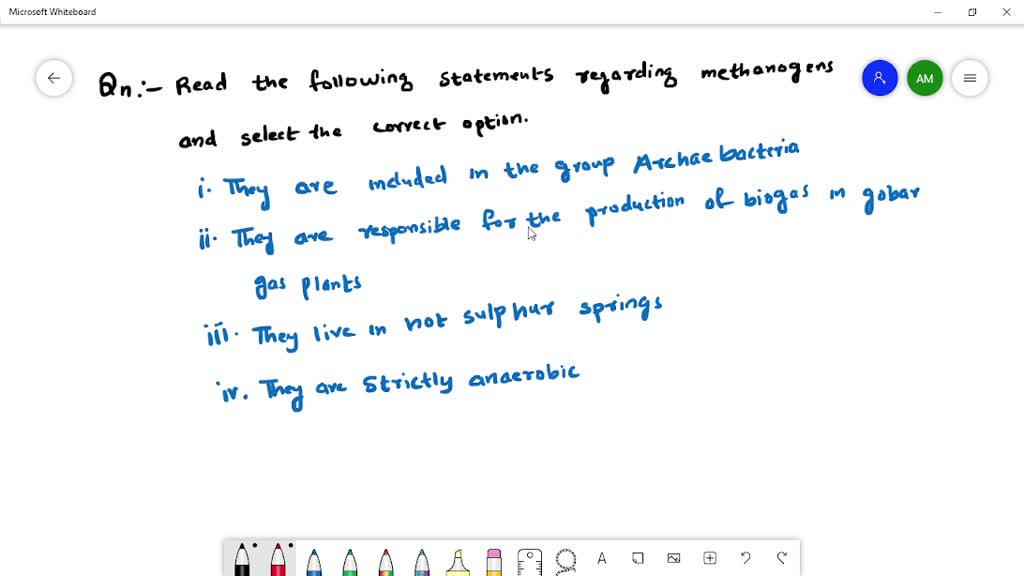 Microsoft Whiteboard
Qn:- Read the following statements regarding methanogens
AM
and select the correct option.
i. They are included in the group Archaebacteria
ii. They are responsible for the production of biogas in gobar
gas plants
iii. They live in hot sulphur springs
iv. They are strictly anaerobic
A